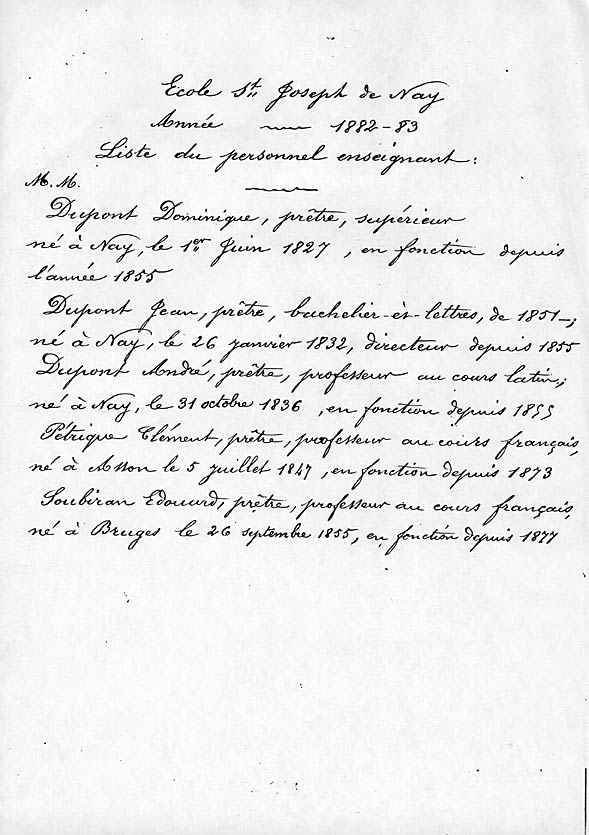 Ecole St. Joseph de Nay
Année 1882-83
Liste du personnel enseignant:
M. M.
Dupont Dominique, prêtre, supérieur
né à Nay, le 1er Juin 1827, en fonction depuis
l'année 1855
Dupont Jean, prêtre, bachelier-ès-lettres, de 1851-;
né à Nay, le 26 janvier 1832, directeur depuis 1855
Dupont André, prêtre, professeur au cours latin;
né à Nay, le 31 octobre 1836, en fonction depuis 1855
Pétrique Clément, prêtre, professeur au cours français,
né à Asson le 5 juillet 1847, en fonction depuis 1873
Soubiran Edouard, prêtre, professeur au cours français,
né à Bruges le 26 septembre 1855, en fonction depuis 1877